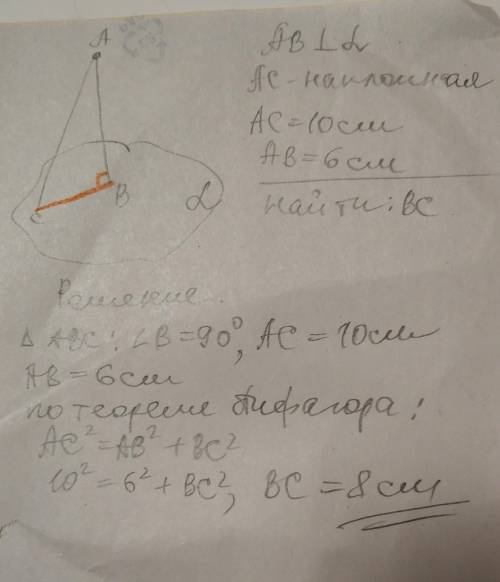 A
AB ⊥ α
AC - наклонная
AC = 10 см
AB = 6 см
найти: BC
B
C
α
Решение.
Δ ABC: ∠B = 90°, AC = 10 см
AB = 6 см
по теореме Пифагора:
AC² = AB² + BC²
10² = 6² + BC², BC = 8 см